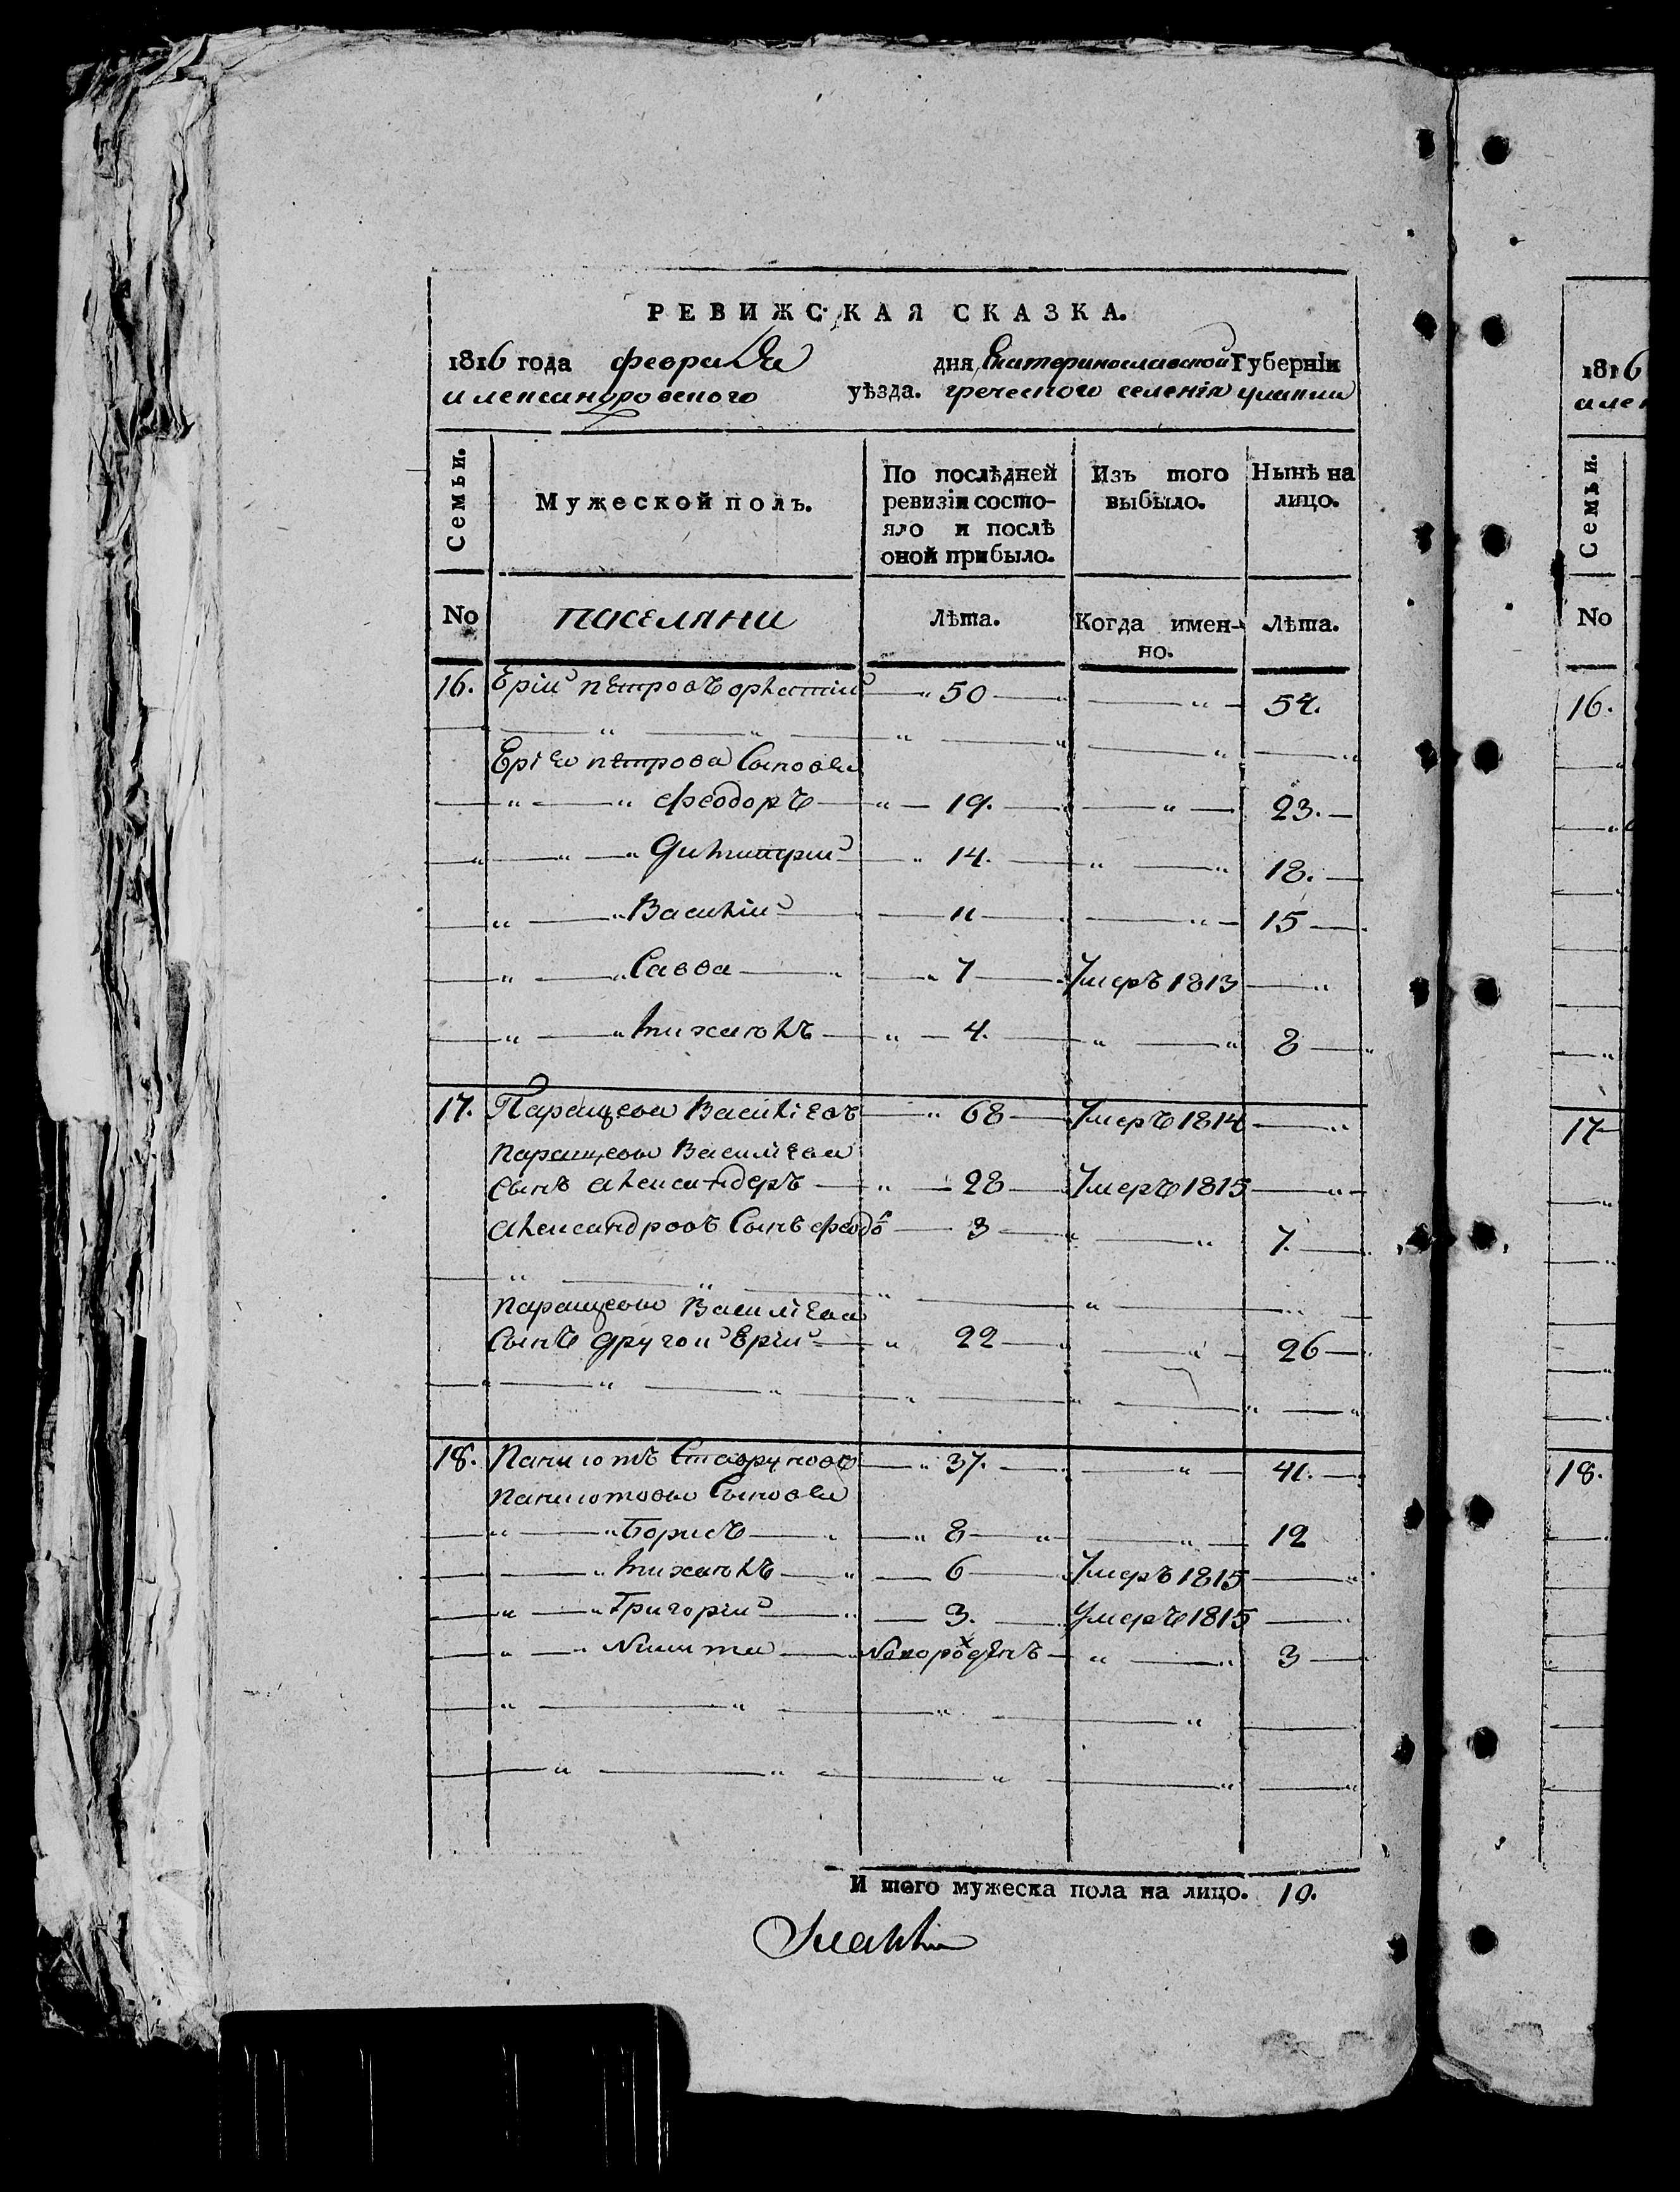 РЕВИЖСКАЯ СКАЗКА.
1816 года февраля дня Екатеринославской Губерніи
александровского уѣзда. греческого селенія
Семьи. Мужеской полъ. По послѣдней ревизіи состояло и послѣ оной прибыло. Изъ того выбыло. Нынѣ на лицо.
No поселяни Лѣта. Когда именно. Лѣта.
16. Ерій петровъ 50 54.
Ерія петрова Сыновя
феодоръ 19. 23.
Димитрій 14. 18.
Василій 11 15
Савва 7 Умеръ 1813
михаилъ 4. 8
17. Паращева Василіевъ 68 Умеръ 1814
паращевы Василіева
Сынъ александеръ 28 Умеръ 1815
александровъ Сынъ феодоръ 3 7.
паращевы Василіева
Сынъ другой Ерій 22 26
18. панаіотъ 37. 41.
панаіотовы Сыновя
Борисъ 8 12
михаилъ 6 Умеръ 1815
Григорій 3. Умеръ 1815
Никита новорожденъ 3
И того мужеска пола на лицо. 10.
1816
18
Семьи.
No
16.
17
18.